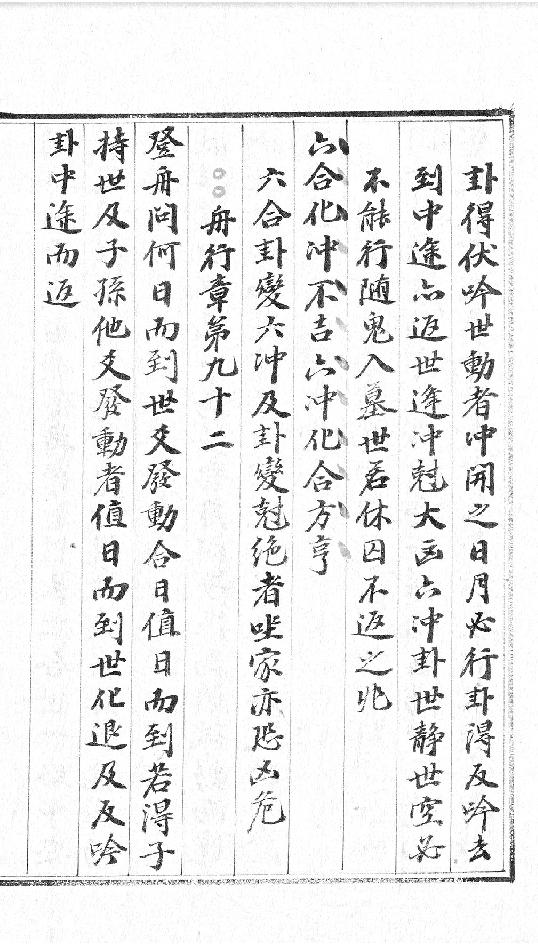 卦得伏吟世動者冲開之日月必行卦得反吟去
到中途亦返世逢冲尅大凶六冲卦世静世空必
不能行隨鬼入墓世若休囚不返之兆
六合化冲不吉六冲化合方亨
六合卦變六冲及卦變尅絶者坐家亦恐凶危
○○舟行章第九十二
登舟問何日而到世爻發動合日值日而到若得子
持世及子孫他爻發動者值日而到世化退及反吟
卦中途而返